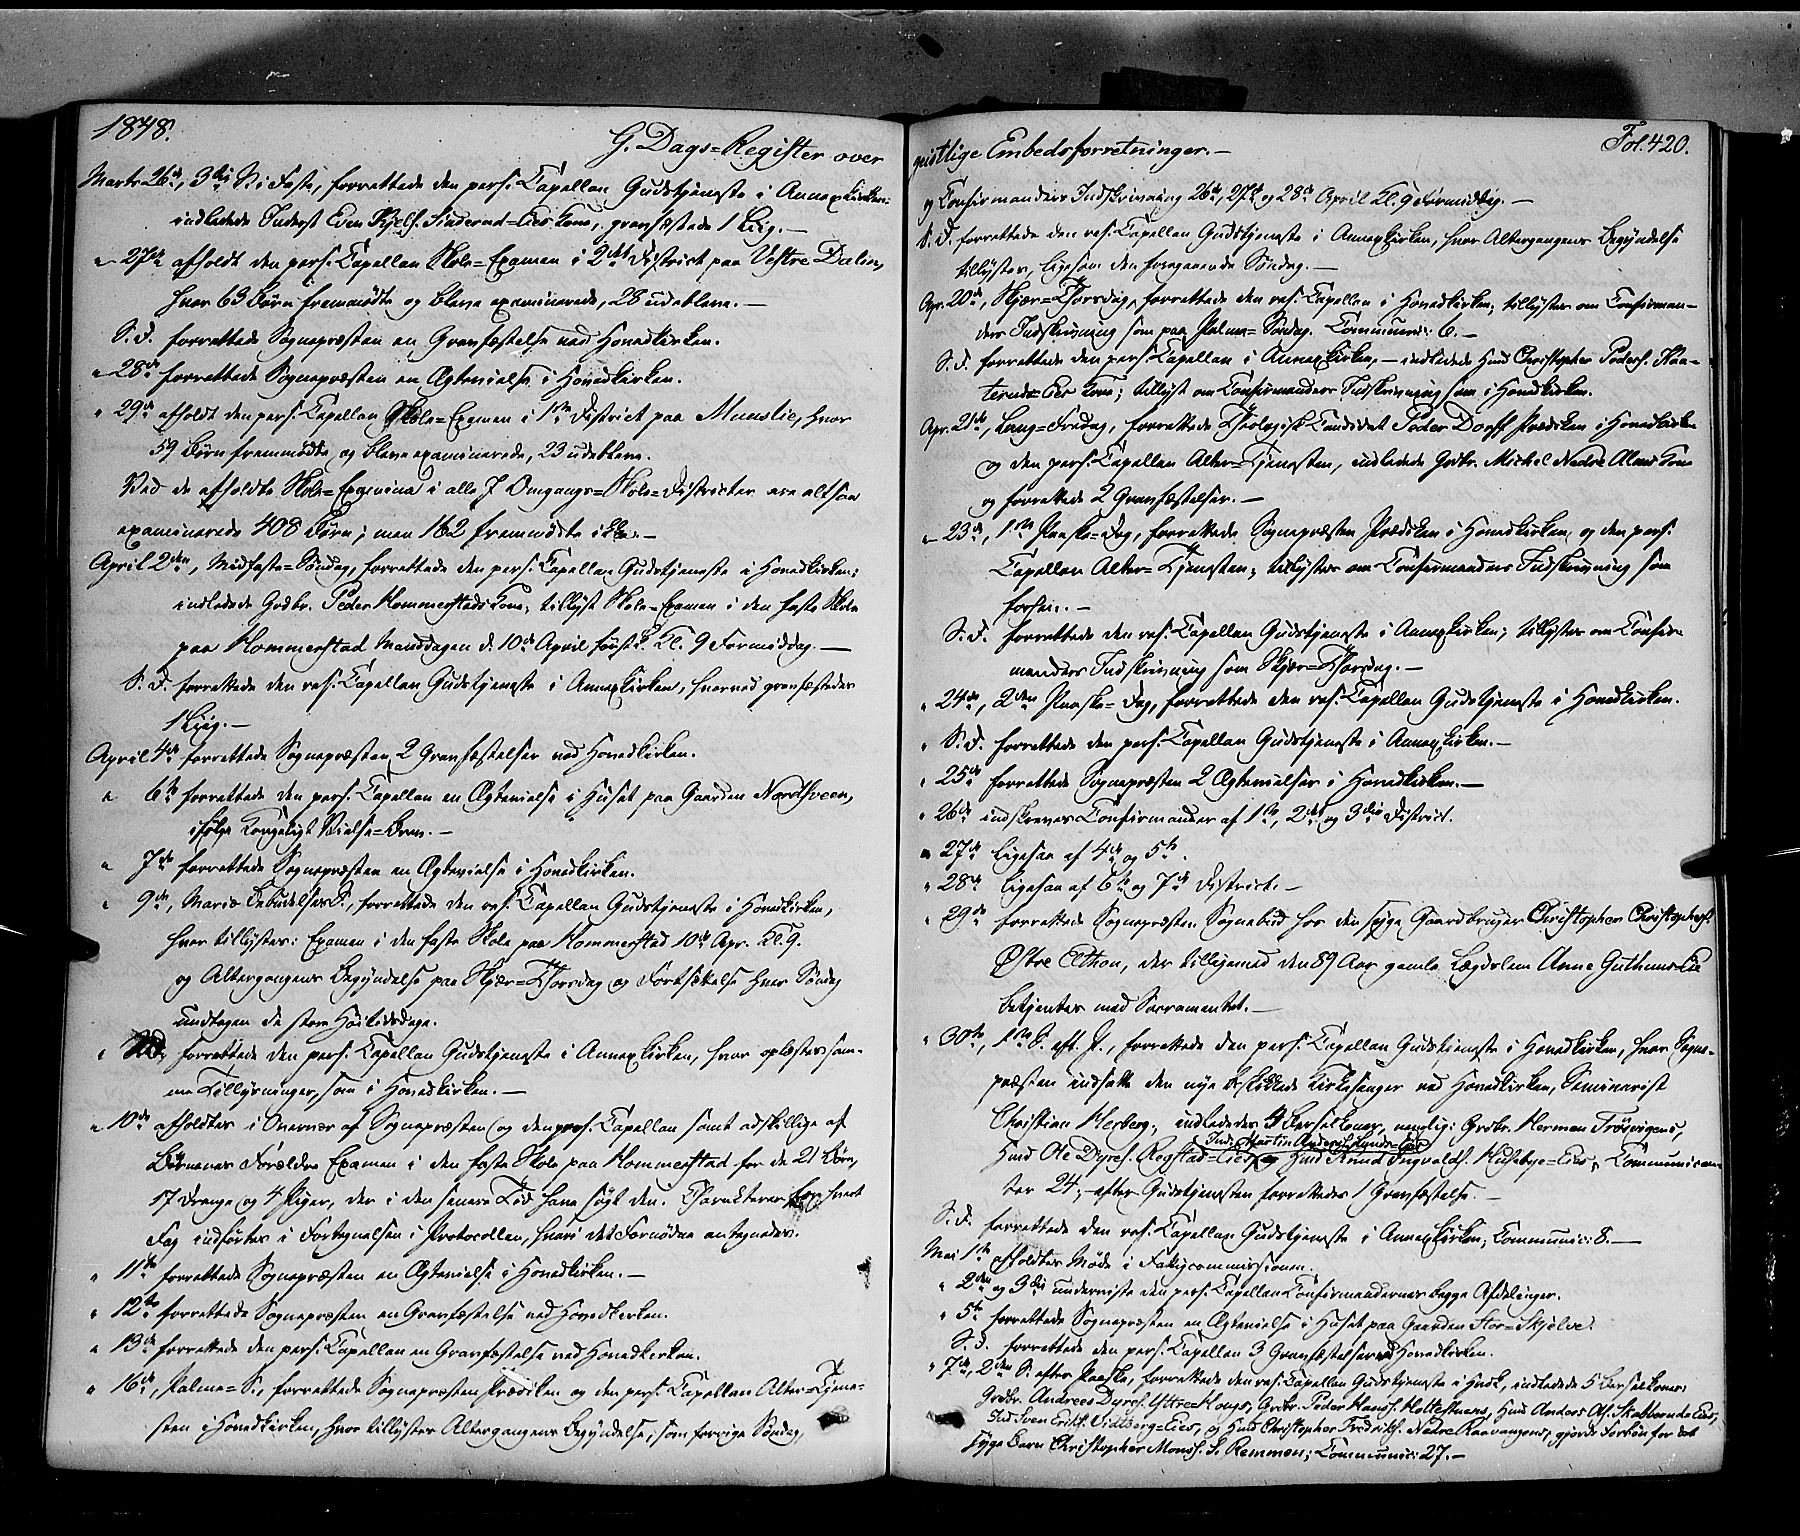 1848.
G. Dags=Register over
Marts 26de, 3die S. i Faste, forrettede den pers. Capellan Gudstjeneste i Annexkirken;
indledede Inderst Even Kjels. eies Kone, gravfæstede 1 Liig.—
" 27de afholdt den pers. Capellan Skole=Examen i 2det District paa Vestre Dalin,
hvor 63 Børn fremmødte og bleve examinerede, 28 udebleve.—
S. D. forrettede Sognepræsten en Gravfæstelse ved Hovedkirken.
" 28de forrettede Sognepræsten en Ægtevielse i Hovedkirken.
" 29de afholdt den pers. Capellan Skole=Examen i 1ste District paa Munslie, hvor
59 Børn fremmødte og bleve examinerede, 23 udebleve.
Ved de afholdte Skole=Examina i alle 7 Omgangs=Skole=Districter ere altsaa
examinerede 408 Børn; men 162 fremmødte ikke.—
April 2den, Midfaste=Søndag, forrettede den pers. Capellan Gudstjeneste i Hovedkirken;
indledede Grdbr. Peder Hommerstads Kone; tillyst Skole=Examen i den faste Skole
paa Hommerstad Mandagen d. 10de April førstk. Kl. 9 Formiddag.—
S. D. forrettede den res. Capellan Gudstjeneste i Annexkirken, hvorved gravfæstedes
1 Liig.—
April 4de forrettede Sognepræsten 2 Gravfæstelser ved Hovedkirken.
" 6te forrettede den pers. Capellan en Ægtevielse i Huset paa Gaarden Nordsveen,
ifølge Kongeligt Vielse=Brev.—
" 7de forrettede Sognepræsten en Ægtevielse i Hovedkirken.
" 9de, Mariæ Bebudelses D., forrettede den res. Capellan Gudstjeneste i Hovedkirken,
hvor tillystes: Examen i den faste Skole paa Hommerstad 10de Apr. Kl. 9.
og Altergangens Begyndelse paa Skjær=Thorsdag og Fortsættelse hver Søndag
undtagen de store Høitidsdage.
" forrettede den pers. Capellan Gudstjeneste i Annexkirken, hvor oplæstes sam-
me Tillysninger, som i Hovedkirken.—
" 10de afholdtes i Overvær af Sognepræsten og den pers. Capellan samt adskillige af
Børnenes Forældre Examen i den faste Skole paa Hommerstad for de 21 Børn,
17 Drenge og 4 Piger, der i den senere Tid have søgt den. Charakterer for hvert
Fag indførtes i Fortegnelsen i Protocollen, hvori det Fornødne antegnedes.
" 11te forrettede Sognepræsten en Ægtevielse i Hovedkirken.—
" 12te forrettede Sognepræsten en Gravfæstelse ved Hovedkirken.
" 13de forrettede den pers. Capellan en Gravfæstelse ved Hovedkirken.
" 16de, Palme=S., forrettede Sognepræsten Prædiken og den pers. Capellan Alter=Tjene-
sten i Hovedkirken, hvor tillystes Altergangens Begyndelse, som forrige Søndag,
geistlige Embedsforretninger.—
Fol. 420.
og Confirmanders Indskrivning 26de, 27de og 28de April Kl. 9 Formiddag.—
S. D. forrettede den res. Capellan Gudstjeneste i Annexkirken, hvor Altergangens Begyndelse
tillystes, ligesom den foregaaende Søndag.—
Apr. 20de, Skjær=Thorsdag, forrettede den res. Capellan i Hovedkirken; tillystes om Confirman-
ders Indskrivning som paa Palme=Søndag. Communic: 6.—
S. D. forrettede den pers. Capellan i Annexkirken,— indledede Huusmd Christopher Peders.
Eies Kone; tillyst om Confirmanders Indskrivning som i Hovedkirken.
Apr. 21de, Lang=Fredag, forrettede Theologisk Candidat Peder Dorff Prædiken i Hovedkirken
og den pers. Capellan Alter=Tjenesten, indledede Grdbr. Michel Nedre Alms Kone
og forrettede 2 Gravfæstelser.—
" 23de, 1ste Paaske=Dag, forrettede Sognepræsten Prædiken i Hovedkirken og den pers.
Capellan Alter=Tjenesten; tillystes om Confirmanders Indskrivning som
forhen.—
S. D. forrettede den res. Capellan Gudstjeneste i Annexkirken; tillystes om Confir-
manders Indskrivning som Skjær=Thorsdag.—
" 24de, 2den Paaske=Dag, forrettede den res. Capellan Gudstjeneste i Hovedkirken.
" S. D. forrettede den pers. Capellan Gudstjeneste i Annexkirken.—
" 25de forrettede Sognepræsten 2 Ægtevielser i Hovedkirken.—
" 26de indskreves Confirmander af 1ste, 2det og 3die District.
" 27de ligesaa af 4de og 5te.
" 28de ligesaa af 6te og 7de District.—
" 29de forrettede Sognepræsten Sognebud hos den syge Gaardbruger Christopher Christophers.
Østre Elthon, der tilligemed den 89 Aar gamle Lægdslem Anne Guthuuslie
betjentes med Sacramentet.—
" 30te, 1ste S. eft. P., forrettede den pers. Capellan Gudstjeneste i Hovedkirken, hvor Sogne-
præsten indsatte den nye beskikkede Kirkesanger ved Hovedkirken, Seminarist
Christian Herberg; indlededes 4 Barselkoner, nemlig: Grdbr. Herman Trøsvigens,
Ind. Martin Anders. Lunds=Eiet
Hmd Ole Dyres. Regstad=Eies og Hmd Knud Ingvalds. Husebye=Eies; Communican-
ter 24; efter Gudstjenesten forrettedes 1 Gravfæstelse.—
S. D. forrettede den res. Capellan Gudstjeneste i Annexkirken; Communic: 8.—
Mai 1ste afholdtes Møde i Fattigcommissionen.
" 2den og 3die underviste den pers. Capellan Confirmandernes begge Afdelinger.
" 5te forrettede Sognepræsten en Ægtevielse i Huset paa Gaarden Stor=Skjelve.
S. D. forrettede den pers. Capellan 3 Gravfæstelser ved Hovedkirken.
" 7de, 2den S. efter Paaske, forrettede den res. Capellan Gudstjeneste i Hvdk, indledede 5 Barselkoner:
Grdbr. Andreas Dyres. Yttre=Hougs, Grdbr. Peder Hans. Holtesmoes, Hmd Anders Ol. Stabberud=Eies,
Ind Sven Erik. Vidberg=Eies, og Hmd Christopher Fredriks. Nedre Ravangens, gjorde Forbøn for det
syge Barn Christopher Mons. S. Remmen; Communic: 27.—